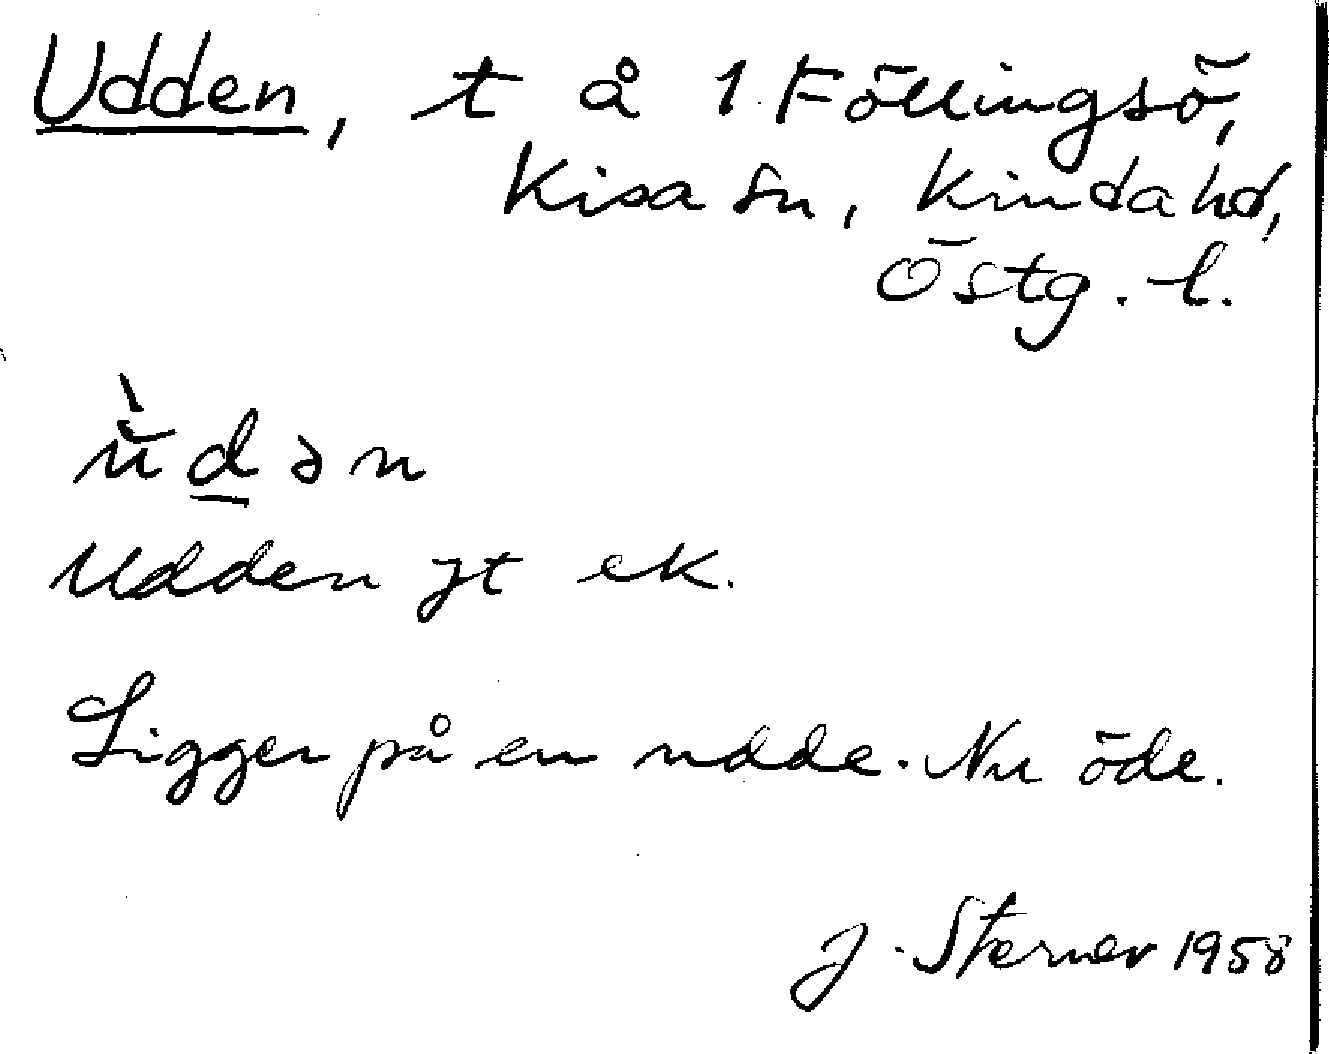 Udden, t å 1 Föllingsö,
Kisa sn, Kinda hd,
Östg. l.
ùdən
Udden jt ek.
Ligger på en udde. Nu öde.
J. Sterner 1958